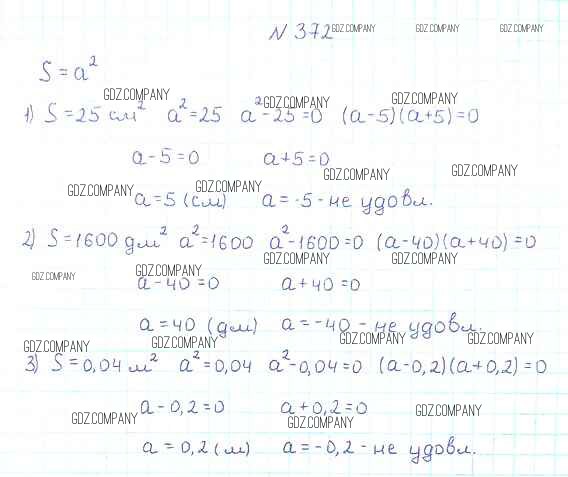 N 372 GDZ.COMPANY GDZ.COMPANY GDZ.COMPANY
S = a²
GDZ.COMPANY GDZ.COMPANY GDZ.COMPANY
1) S = 25 см² a² = 25 a² - 25 = 0 (a - 5)(a + 5) = 0
a - 5 = 0 a + 5 = 0
GDZ.COMPANY GDZ.COMPANY GDZ.COMPANY GDZ.COMPANY
a = 5 (см) a = -5 - не удовл.
2) S = 1600 дм² a² = 1600 a² - 1600 = 0 (a - 40)(a + 40) = 0
GDZ.COMPANY GDZ.COMPANY GDZ.COMPANY GDZ.COMPANY
a - 40 = 0 a + 40 = 0
a = 40 (дм) a = -40 - не удовл.
GDZ.COMPANY GDZ.COMPANY GDZ.COMPANY GDZ.COMPANY
3) S = 0,04 м² a² = 0,04 a² - 0,04 = 0 (a - 0,2)(a + 0,2) = 0
a - 0,2 = 0 a + 0,2 = 0
GDZ.COMPANY GDZ.COMPANY GDZ.COMPANY
a = 0,2 (м) a = -0,2 - не удовл.